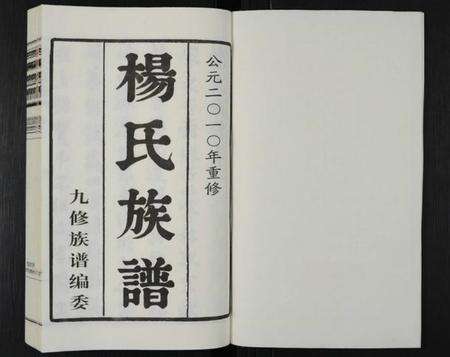 公元二〇一〇年重修
楊氏族譜
九修族谱编委